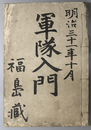 明治三十一年十月
軍隊入門
福島蔵